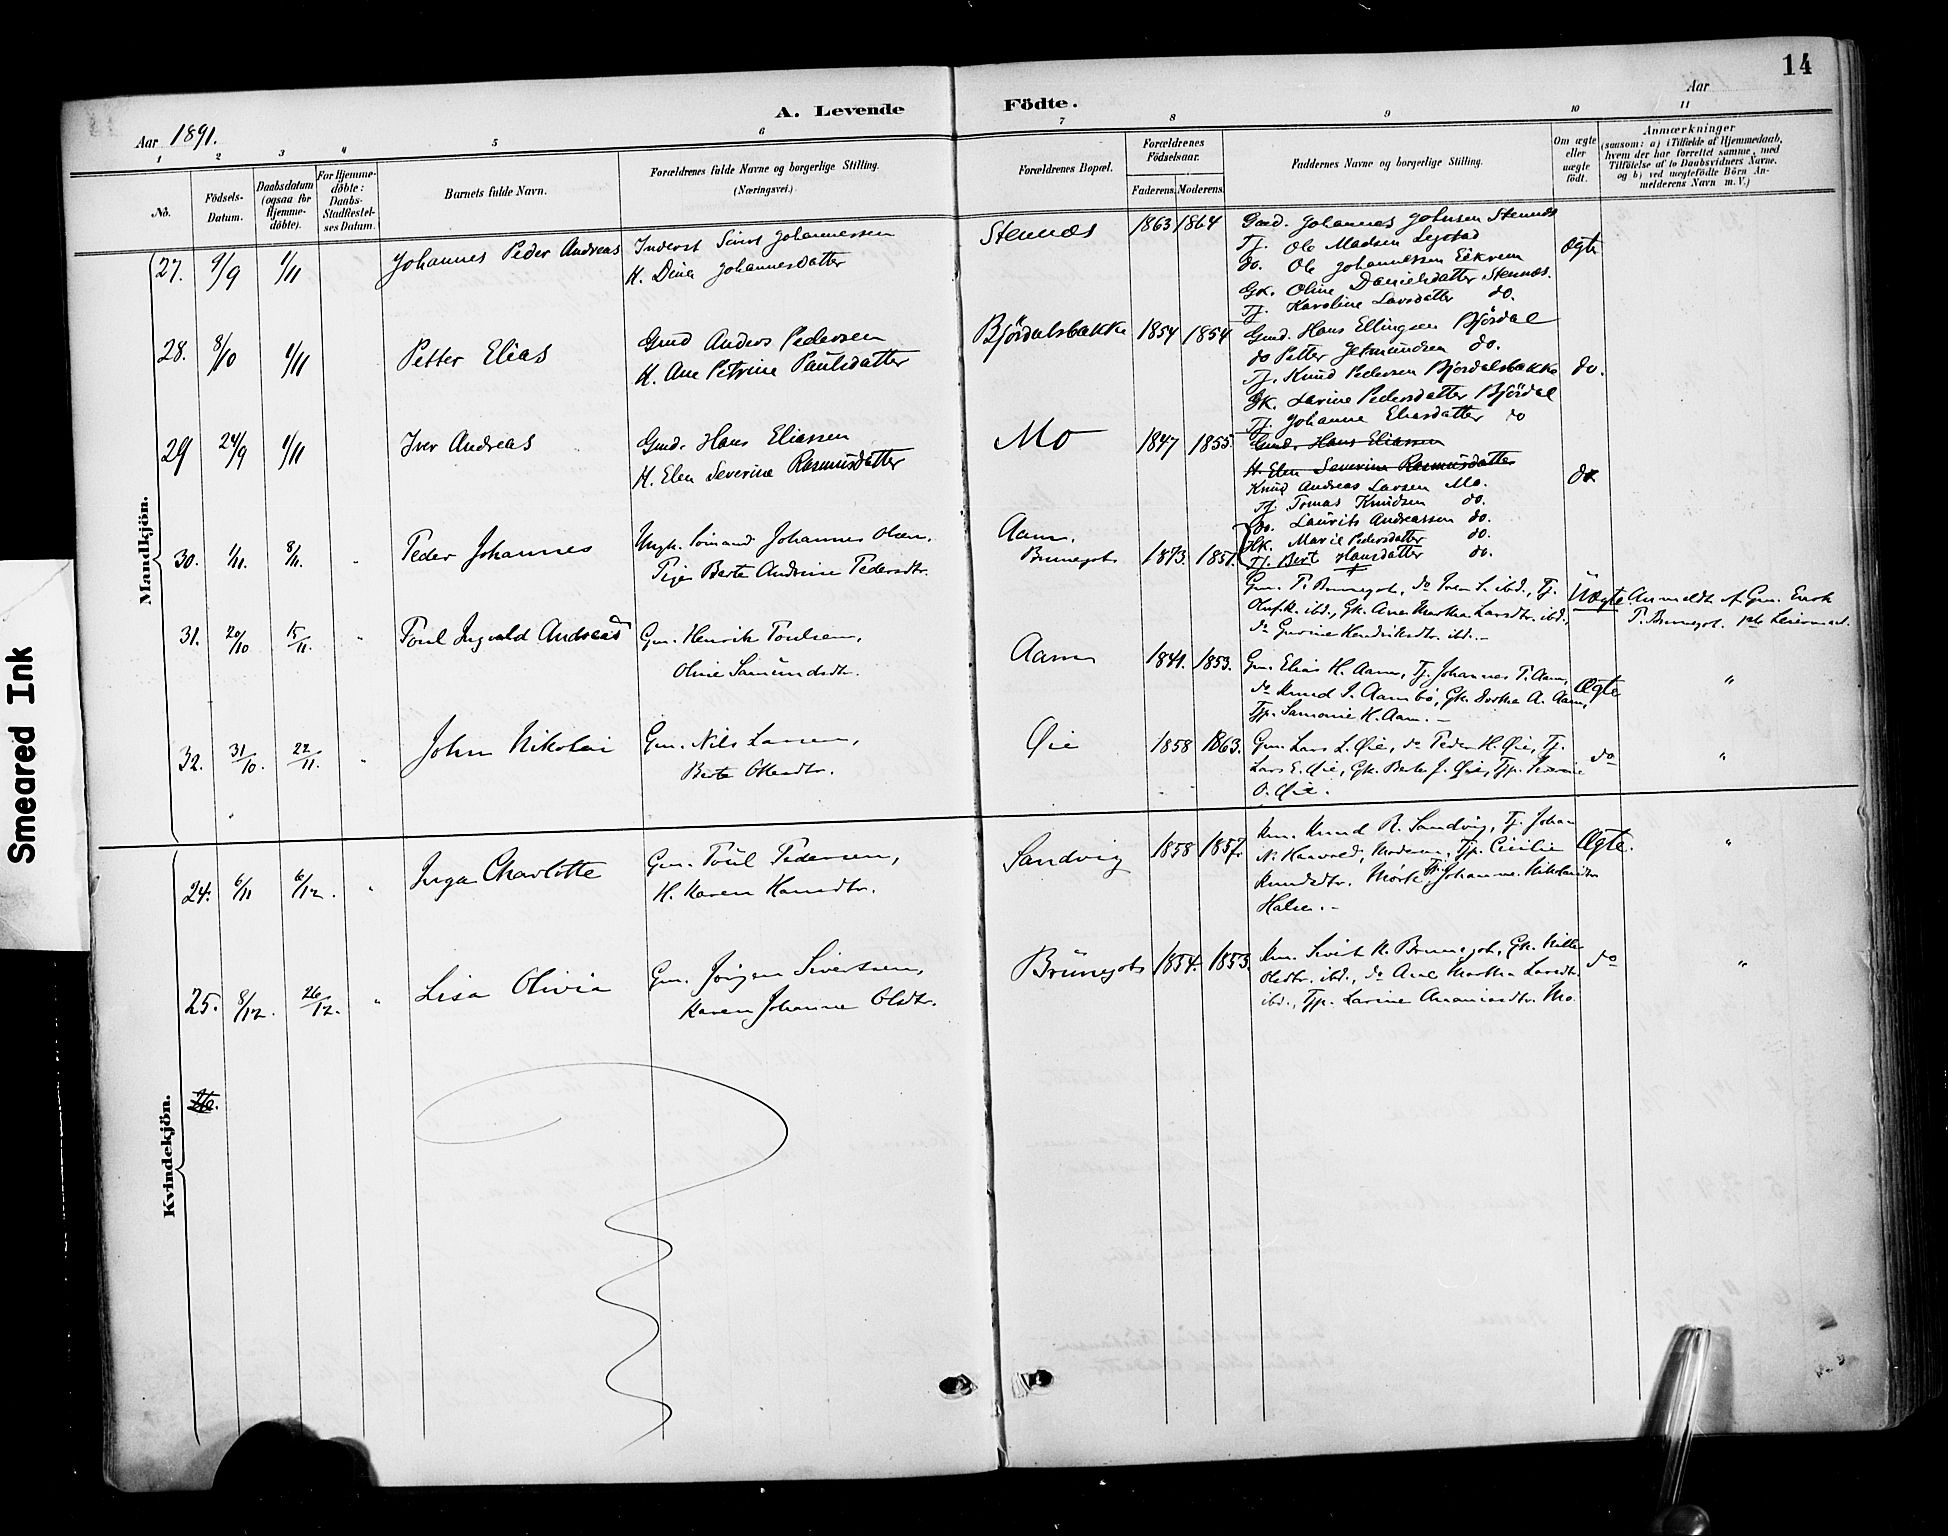 14
A. Levende Födte.
Aar 1891.
Aar
1 2 3 4 5 6 7 8 9 10 11
No.
Födsels-Datum.
Daabsdatum (ogsaa for Hjemme-döbte).
For Hjemme-döbte: Daabs-Stadfæstelses Datum.
Barnets fulde Navn.
Forældrenes fulde Navne og borgerlige Stilling.
(Næringsvei.)
Forældrenes Bopæl.
Forældrenes Födselsaar.
Faderens. Moderens.
Faddernes Navne og borgerlige Stilling.
Om ægte eller uægte födt.
Anmærkninger
(saasom: a) i Tilfælde af Hjemmedaab, hvem der har forrettet samme, med Tilföielse af to Daabsvidners Navne. og b) ved uægtefödte Börn Anmelderens Navn m. V.)
Mandkjön.
27. 9/9 1/11 Johannes Peder Andreas
Inderst Sivert Johannessen
H. Dina Johannesdatter
Stennæs 1863 1864
Gmd. Johannes Johnsen Stennæs
Tj. Ole Madsen
do. Ole Johannessen Eikrem
Gk. Oline Danielsdatter Stennæs.
Tj. Karoline Larsdatter do.
Ægte
28. 8/10 1/11 Petter Elias
Gmd Anders Pedersen
H. Ane Petrine Paulsdatter
Björdalsbakke 1854 1854
Gmd. Hans Ellingsen Björdal
do Petter do.
Tj. Knud Pedersen Bjordalsbakke
Gk. Larine Pedersdatter Björdal
Tj. Johanne Eliasdatter do
do.
29 24/9 1/11 Iver Andreas
Gmd. Hans Eliassen
H. Elen Severine Rasmusdatter
Mo 1847 1855.
Gmd. Hans Eliassen
H. Elen Severine Rasmusdatter
Knud Andreas Larsen Mo.
Tj Tomas Knudsen do.
do. Laurits Andreassen do.
Hk. Marie Pedersdatter do.
Tj. Bert Hansdatter do.
do
30. 1/11. 8/11. Peder Johannes
Ungk. Sömand Johannes Olsen,
Pige Berte Andrine Pedersdtr.
Aam.
Brunegot 1873. 1851.
Gm. P. Brunegot, do Iver S. ibd., Tj.
Oluf K. ibd., Gk. Ane Martha Larsdtr. ibd.,
do Gurine Hendriksdtr. ibd.
Uægte
Anmeldt af Gm. Enok
P. Brunegot. 1ste Leiermaal.
31. 20/10 15/11. Poul Ingvald Andreas
Gm. Henrik Poulsen,
Oline Samundsdtr.
Aam 1841. 1853.
Gm. Elias H. Aam, Tj. Johannes P. Aam,
do Knud I. Aambö, Gk. Dorthea A. Aam,
Tjp. Samonie H. Aam.
Ægte "
32. 31/10. 22/11. John Nikolai
Gm. Nils Larsen,
Berte Olsendtr.
Øie 1858 1863.
Gm. Lars L. Øie, do Peder H. Øie, Tj.
Lars E. Øie, Gk. Berte J. Øie, Tjp.
O. Øie.
do "
Kvindekjön.
24. 6/11 6/12. Inga Charlotte
Gm. Poul Pedersen,
H. Karen Hansdtr.
Sandvig 1858 1857.
Km. Knud R. Sandvig, Tj. Johan
N. Moderen, Tjp. Cicilie
Knudsdtr. Mörk, Tj. Johanne Nikolaidtr
Halsen.
Ægte. "
25. 8/12. 26/12. Lisa Olivia
Gm. Jörgen Sivertsen,
Karen Johanne Olsdtr.
Brünegot 1854. 1853.
Km. Sivert K. Brunegot, Gk.
Olsdtr. ibd., do Ane Martha Larsdtr.
ibd., Tjp. Larine Ananiasdtr. Mo.
do "
26.
Smeared Ink